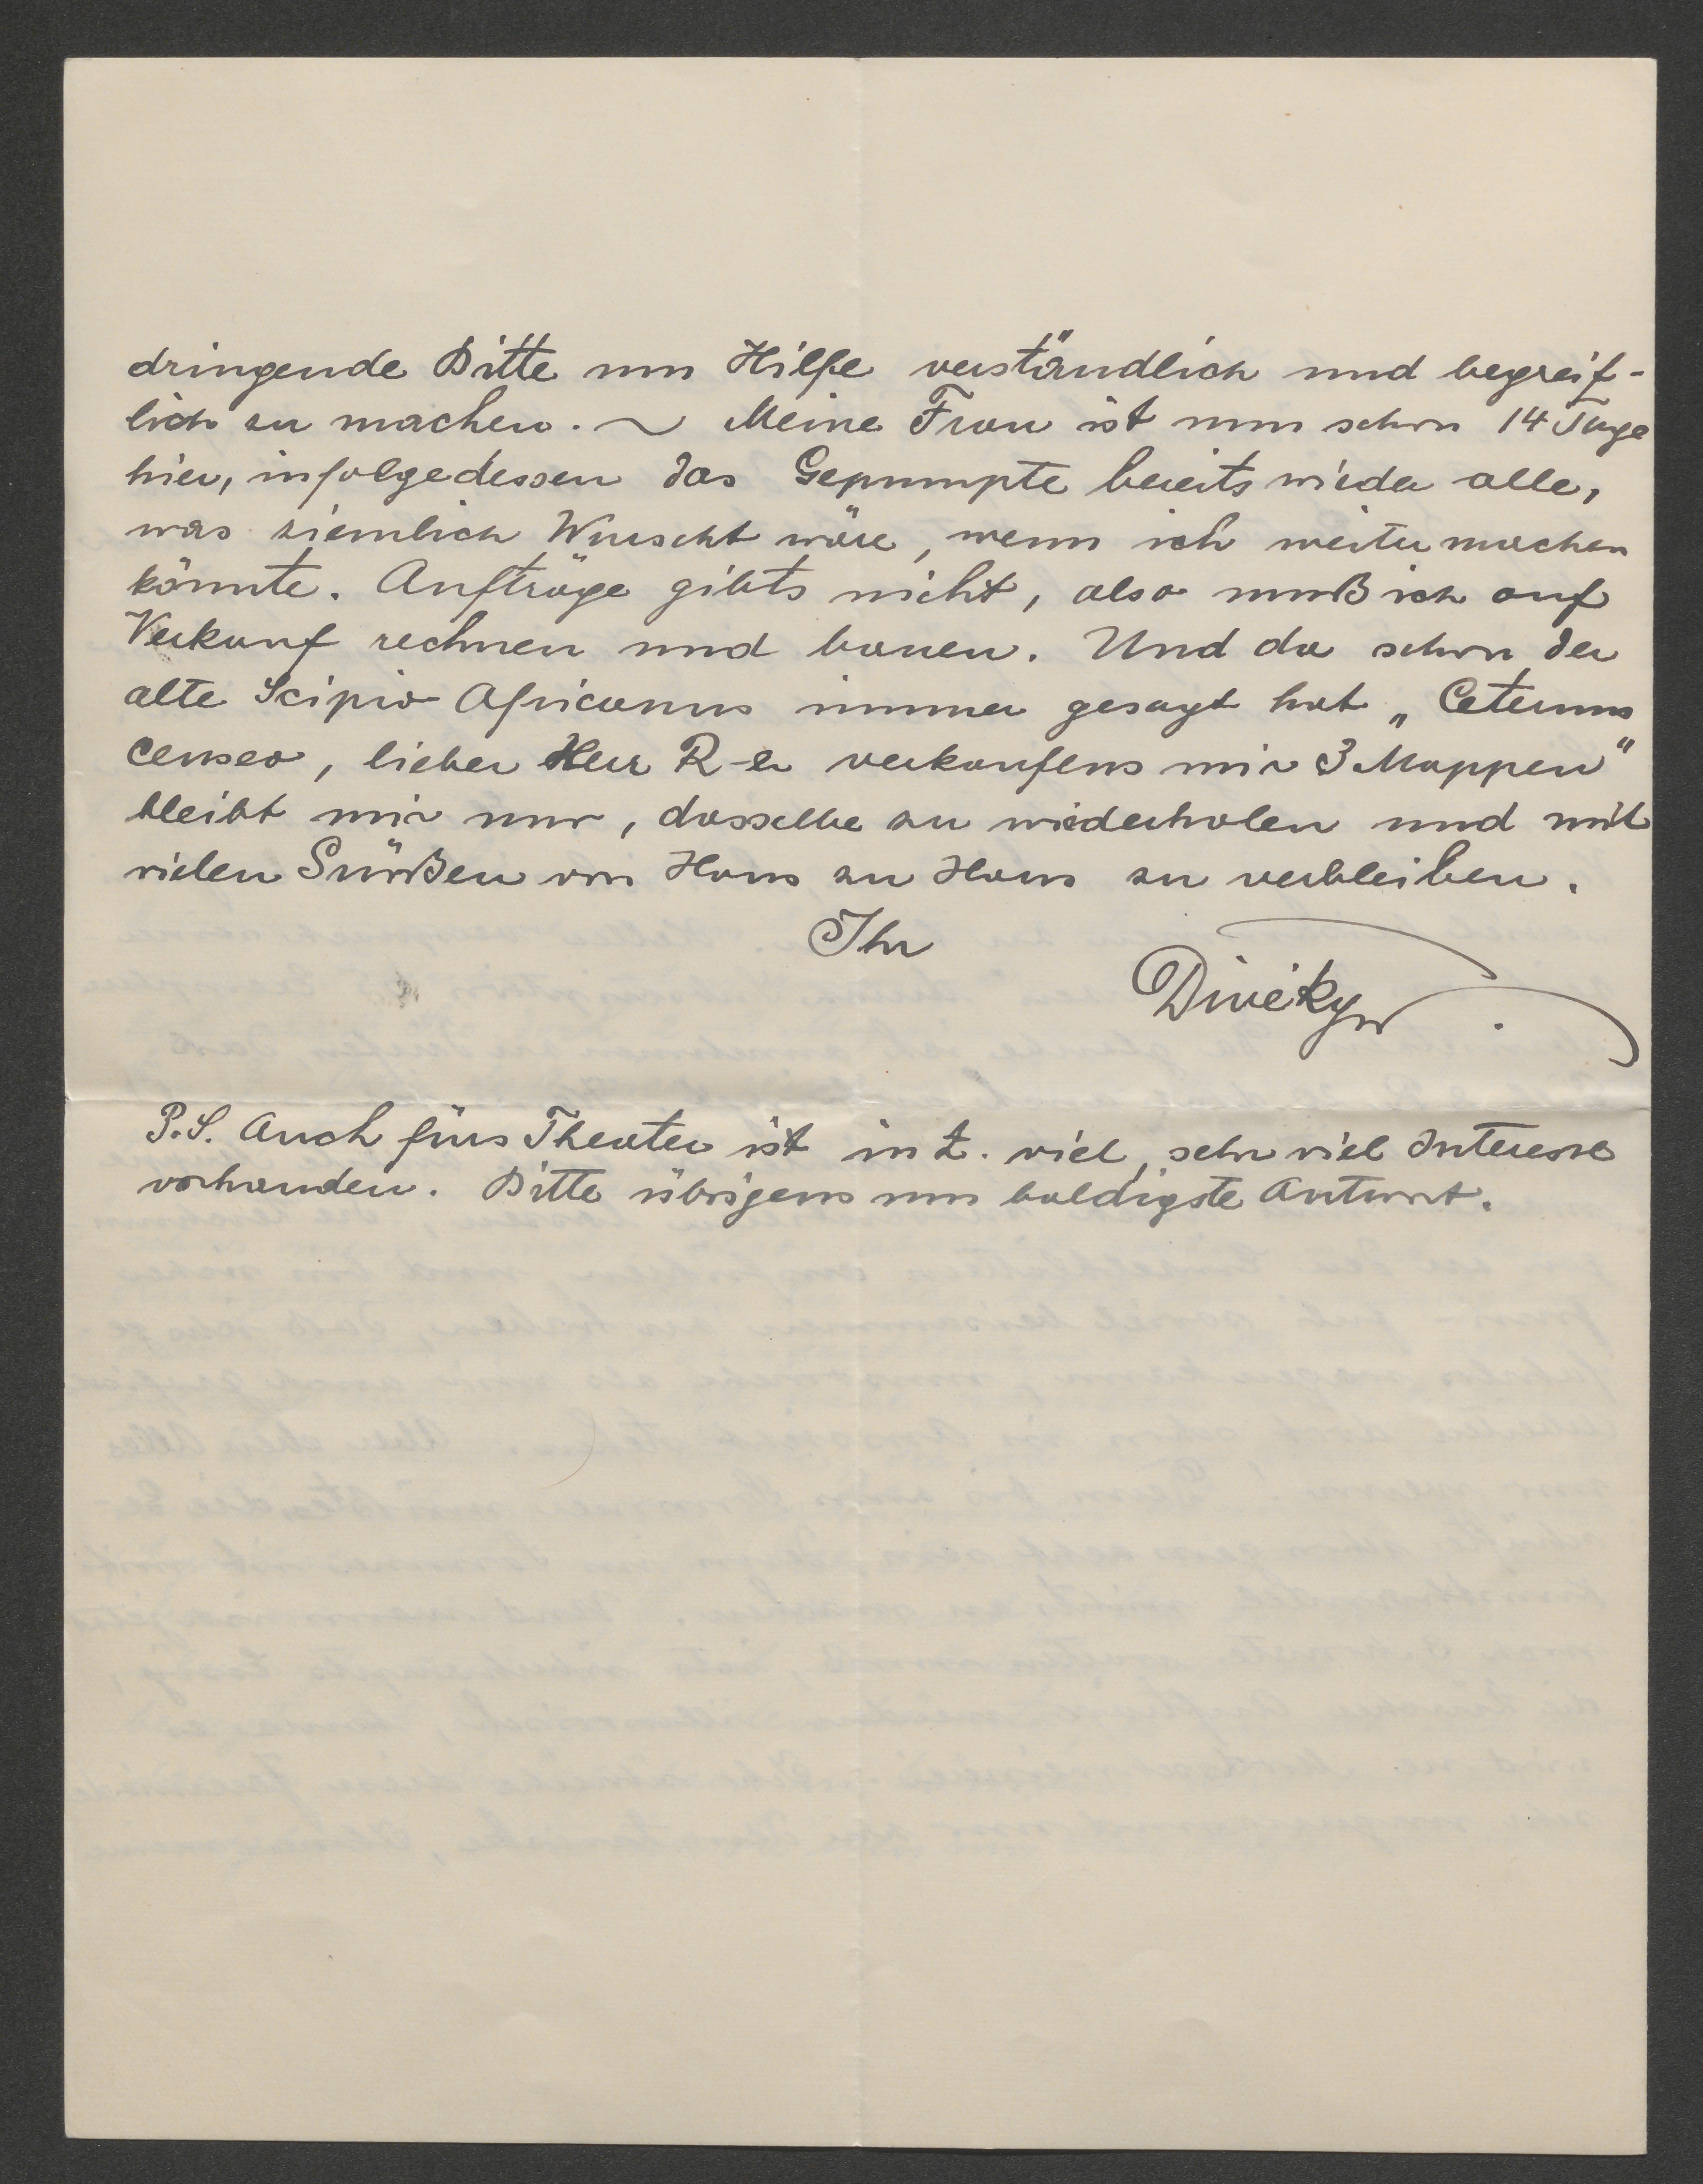 dringende Bitte um Hilfe verständlich und begreif-
lich zu machen. ~ Meine Frau ist nun schon 14 Tage
hier, infolgedessen das Gepumpte bereits wieder alle,
was ziemlich Wurscht wäre, wenn ich weitermachen
könnte. Aufträge gibts nicht, also muß ich auf
Verkauf rechnen und bauen. Und da schon der
alte Scipio Africanus immer gesagt hat „Ceterum
censeo, lieber Herr R-er verkaufens mir 3 Mappen"
bleibt mir nur, dasselbe zu wiederholen und mit
vielen Grüßen von Haus zu Haus zu verbleiben.
Ihr
Diveky
P.S. Auch fürs Theater ist in Z. viel, sehr viel Interesse
vorhanden. Bitte übrigens um baldigste Antwort.